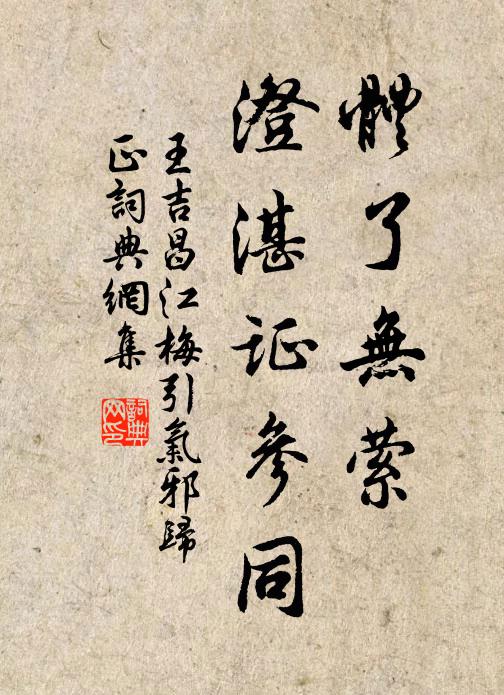 體了無萦
澄湛证參同
王吉昌江梅引氣邪歸
正詞典網集
詞典
网印